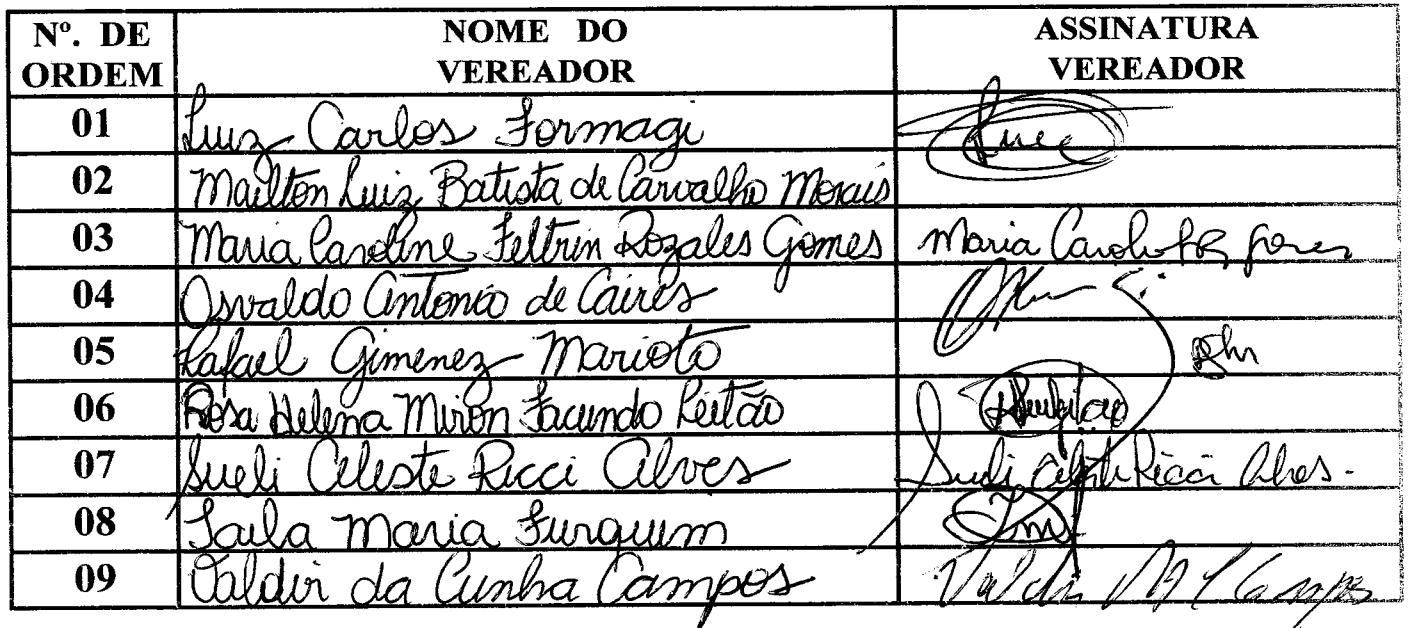 Nº. DE ORDEM NOME DO VEREADOR ASSINATURA VEREADOR
01 Luiz Carlos Formagi Luiz
02 Mailton Luiz Batista de Carvalho Morais
03 Maria Caroline Feltrin Rozales Gomes Maria Carol
04 Osvaldo Antonio de Caires
05 Rafael Gimenez Marioto
06 Rosa Helena Miron Facundo Leitão
07 Sueli Celeste Ricci Alves Sueli Celeste Ricci Alves.
08 Taila Maria Furquim
09 Valdir da Cunha Campos Valdir Campos